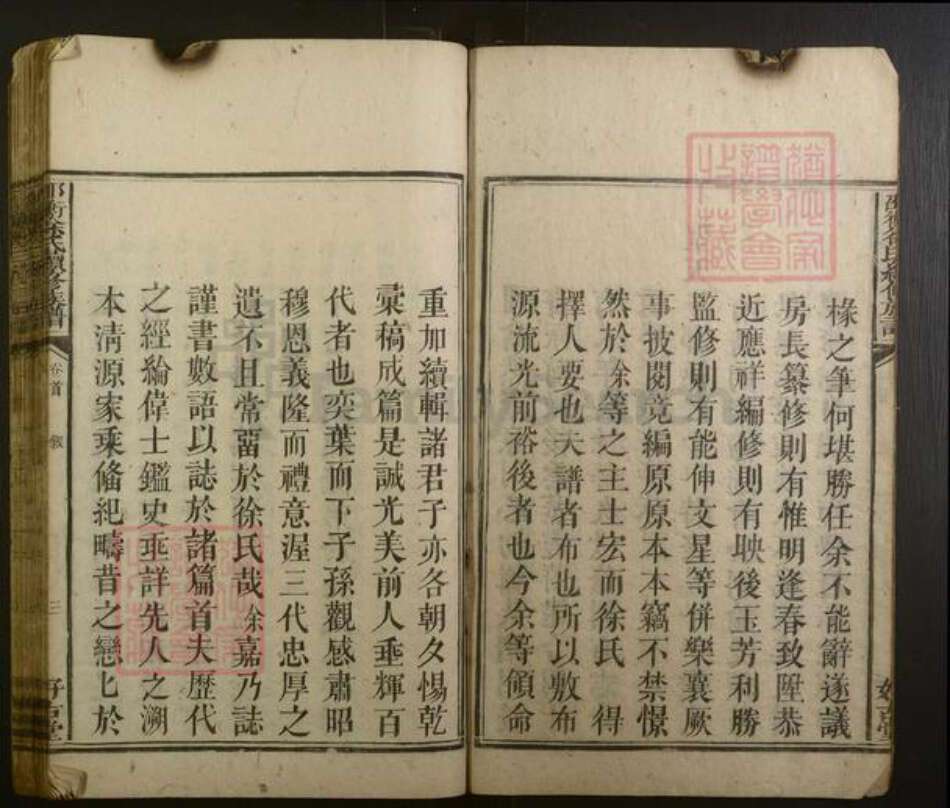 椽之筆何堪勝任余不能辭遂議
房長纂修則有惟明逢春致陞恭
近應祥編修則有映後玉芳利勝
監修則有能伸文星等併樂襄厥
事披閱竟編原原本本竊不禁憬
然於余等之主士宏而徐氏 得
擇人要也夫譜者布也所以敷布
源流光前裕後者也今余等領命
重加續輯諸君子亦各朝夕惕乾
彚稿成篇是誠光美前人垂輝百
代者也奕葉而下子孫觀感肅昭
穆恩義隆而禮意渥三代忠厚之
遺不且常畱於徐氏哉余嘉乃誌
謹書數語以誌於諸篇首夫歷代
之經綸偉士鑑史亟詳先人之溯
本清源家乘俻紀疇昔之戀七於
卷首 敘 三